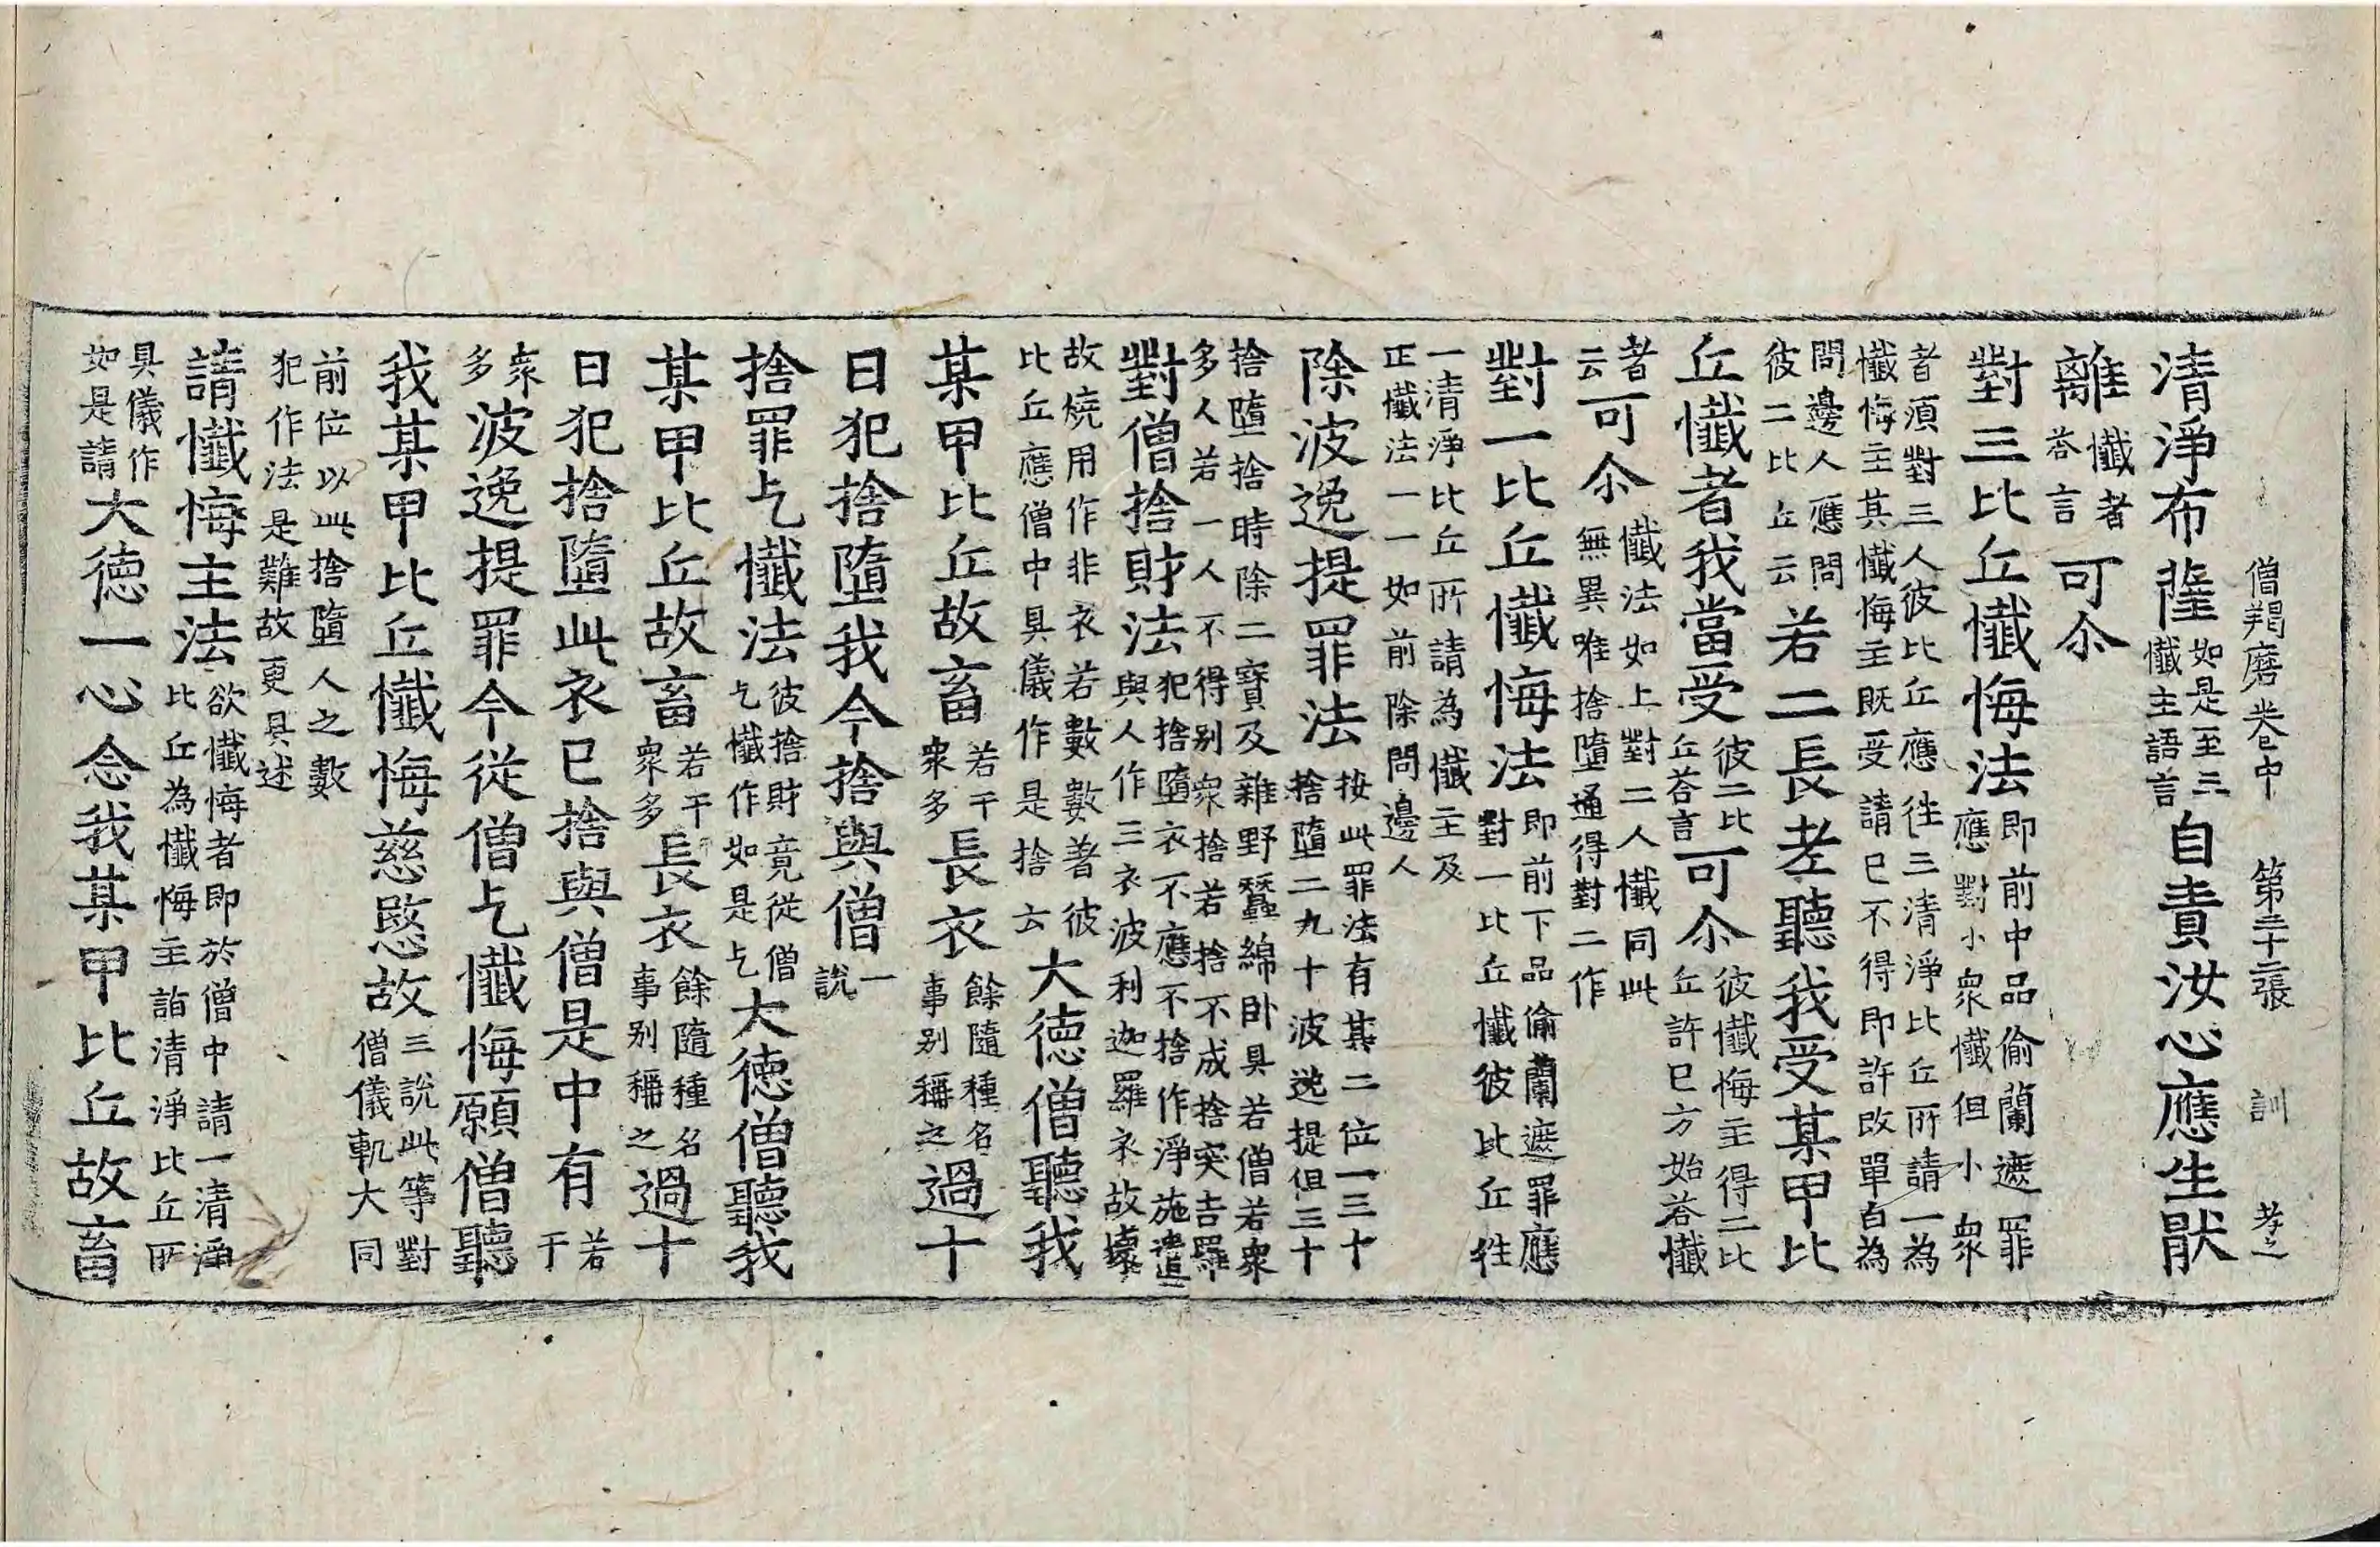 僧羯磨卷中 第三十二張 訓 孝之
清淨布薩如是至三懺主語言自責汝心應生猒
離懺者荅言可尒
對三比丘懺悔法即前中品偷蘭遮罪應對小衆懺但小衆
者須對三人彼比丘應往三清淨比丘所請一為懺悔主其懺悔主既受請已不得即許改單白為
問邊人應問彼二比丘云若二長老聽我受某甲比
丘懺者我當受彼二比丘荅言可尒彼懺悔主得二比丘許已方始荅懺
者云可尒懺法如上對二人懺同此無異唯捨墮通得對二作
對一比丘懺悔法即前下品偷蘭遮罪應對一比丘懺彼比丘往
一清淨比丘所請為懺主及正懺法一一如前除問邊人
除波逸提罪法按此罪法有其二位一三十捨墮二九十波逸提但三十
捨墮捨時除二寶及雜野蠶綿卧具若僧若衆多人若一人不得別衆捨若捨不成捨突吉羅
對僧捨財法犯捨墮衣不應不捨作淨施遣與人作三衣波利迦羅衣故壞
故燒用作非衣若數數著彼比丘應僧中具儀作是捨云大德僧聽我
某甲比丘故畜若干衆多長衣餘隨種名事別稱之過十
日犯捨墮我今捨與僧一說
捨罪乞懺法彼捨財竟從僧乞懺作如是乞大德僧聽我
某甲比丘故畜若干衆多長衣餘隨種名事別稱之過十
日犯捨墮此衣已捨與僧是中有若干
衆多波逸提罪今從僧乞懺悔願僧聽
我某甲比丘懺悔慈愍故三說此等對僧儀軌大同
前位以此捨墮人之數犯作法是難故更具述
請懺悔主法欲懺悔者即於僧中請一清淨比丘為懺悔主詣清淨比丘所
具儀作如是請大德一心念我某甲比丘故畜